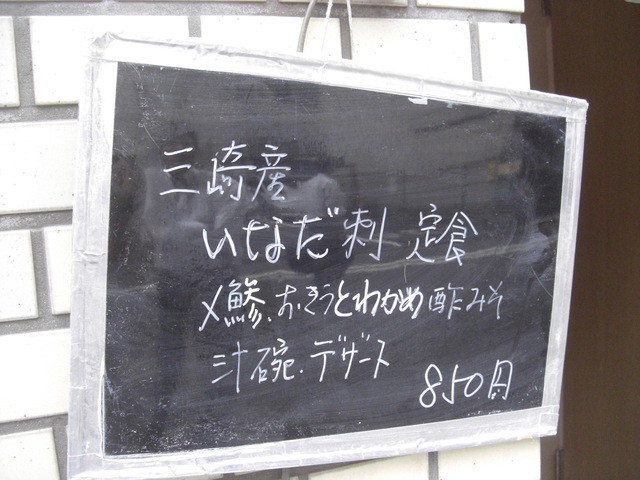 三崎産
いなだ刺 定食
〆鯵、おきうとわかめ酢みそ
汁碗、デザート
850円